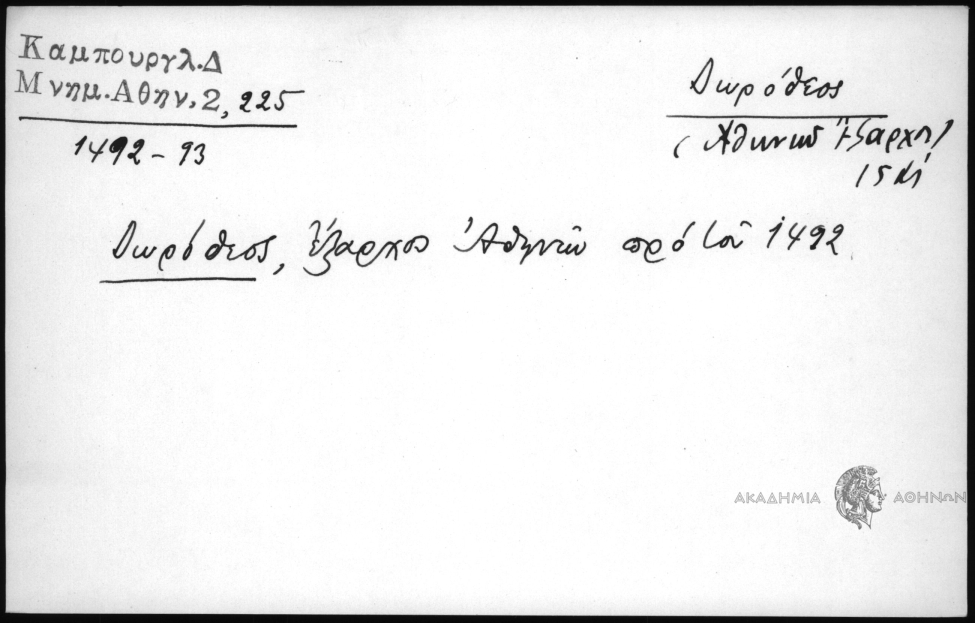 Καμπουργλ.Δ
Μνημ.Αθην.2, 225
1492-93
Δωρόθεος
(Ἀθηνῶν Ἔξαρχος)
Δωρόθεος, Ἔξαρχος Ἀθηνῶν πρό τοῦ 1492
ΑΚΑΔΗΜΙΑ ΑΘΗΝΩΝ